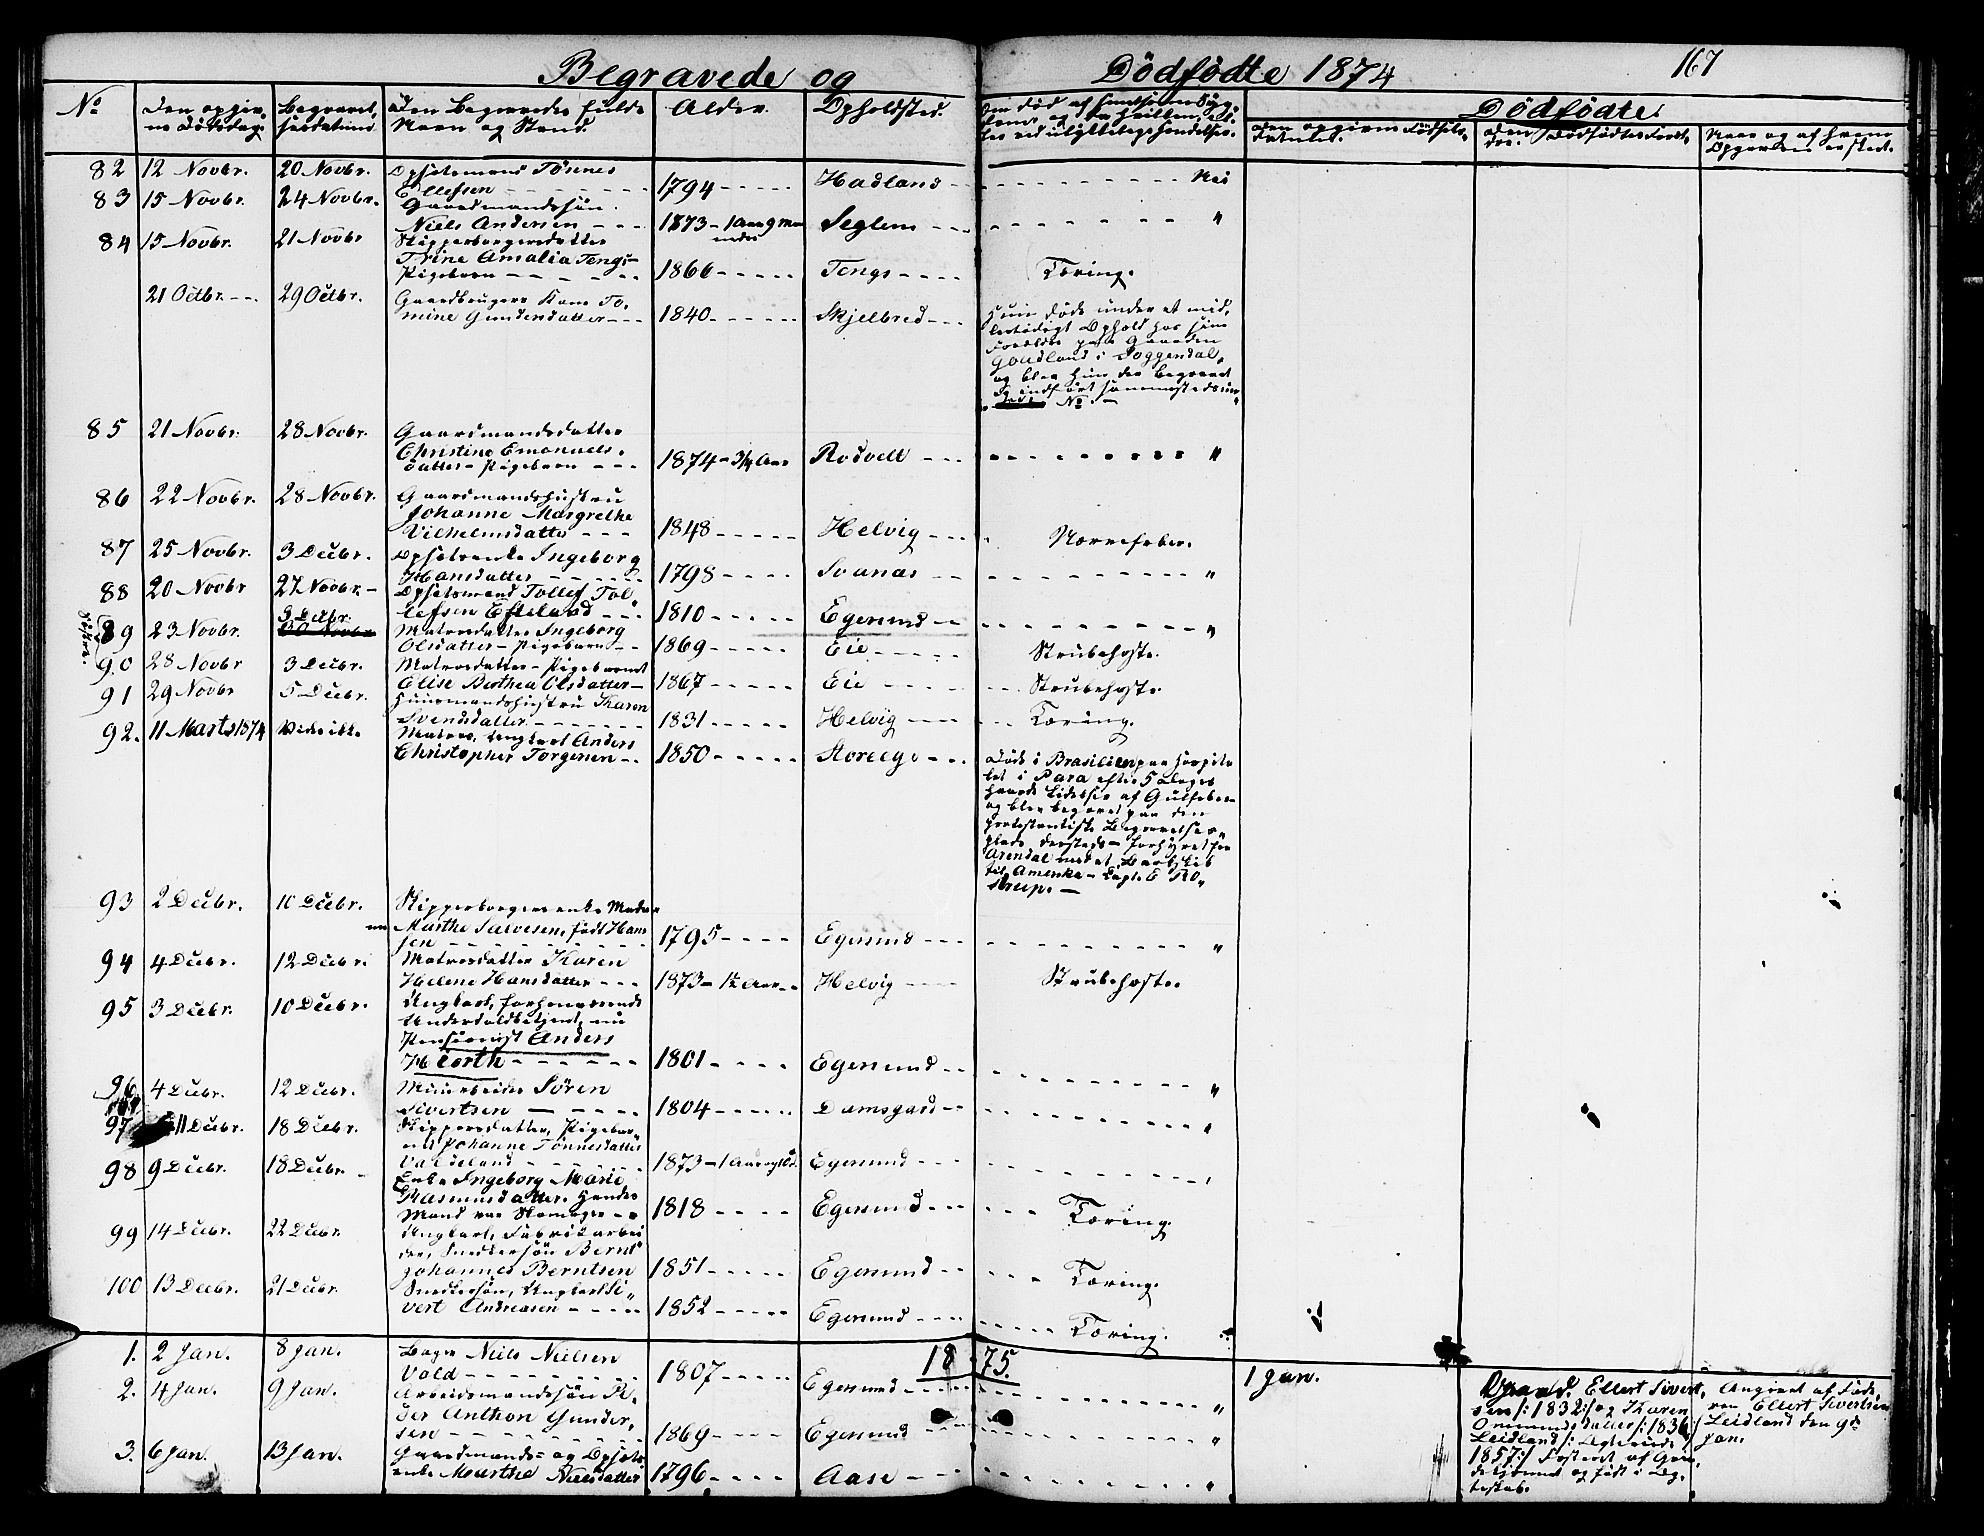 Begravede og Dödfödte 1874
167
No
Den opgivne Dödsdag.
Begravelsesdatum
Den Begravedes fulde Navn og Stand.
Alder.
Opholdsted.
Dödfödte.
82 12 Novbr. 20 Novbr. Opsidsmand Tönnes
Ellefsen 1794 Hadland Nei
83 15 Novbr. 24 Novbr. Gaardmandssön
Niels Andersen 1873 - 1 Aar 9 Maaneder Seglem "
84 15 Novbr. 21 Novbr Skipperborgersdatter
Trine Amalia Tengs
Pigebarn 1866 Tengs Tæring.
21 Octbr. 29 Octbr. Gaardbrugers Kone To-
mine Gundersdatter 1840 Skjelbred
Hun döde under et mid-
lertidigt Ophold hos sine
Forældre paa Gaarden
Goudland i Soggendal,
og blev hun der begravet
og indfört sammesteds un-
No. -
85 21 Novbr. 28 Novbr. Gaardmandsdatter
Christine Emanuels-
datter - Pigebarn 1874 - 3/4 Aar Rodvelt "
86 22 Novbr. 28 Novbr. Gaardmandshustru
Johanne Margrethe
Vilhelmsdatter 1848 Helvig Nervefeber.
87 25 Novbr. 3 Decbr. Opsidsenke Ingeborg
Hansdatter 1798 Svanæs "
88 20 Novbr 27 Novbr. Opsidsmand Tollef Tol-
lefsen Efteland 1810 Egersund "
89 23 Novbr. 3 Decbr. Matrosdatter Ingeborg
Olsdatter - Pigebarn 1869 Eie Strubehoste.
90 28 Novbr 3 Decbr. Matrosdatter - Pigebarnet
Elise Berthea Olsdatter 1867 Eie Strubehoste.
91 29 Novbr 5 Decbr. Huusmandshustru Karen
Svendsdatter 1831 Helvig Tæring.
92. 11 Marts 1874 Vides ikke Matros, Ungkarl Anders
Christopher Torgersen 1850 Støreeye
Döde i Brasilien paa Hospita-
let i Para efter 5 Dages
haarde Lidelser af Guulfeber
og blev begravet paa den
protestantiske Begravelses-
plads dersteds - forhyret fra
Arendal med et Barkskib
til Amerika - Capt. E Ro-
strup. -
93 2 Decbr. 10 Decbr. Skipperborgers enke Mada-
me Marthe Salvesen, född Han-
sen 1795 Egersund "
94 4 Decbr. 12 Decbr. Matrosdatter Karen
Helene Hansdatter 1873 - 1½ Aar Helvig Strubehoste
95 3 Decbr. 10 Decbr. Ungkarl, forhenværende
Undertoldbetjent, nu
Pensionist Anders
Hiorth 1801 Egersund "
96 4 Decbr. 12 Decbr. Muurarbeider Sören
Sivertsen 1804 Damsgaard "
97 11 Decbr. 18 Decbr. Skippersdatter, Pigebar-
net Johanne Tönnesdatter
Vadeland 1873 - 1 Aar Egersund
98 9 Decbr. 18 Decbr. Enke Ingeborg Marie
Rasmusdatter. Hendes
Mand var Skomager 1818 Egersund Tæring.
99 14 Decbr. 22 Decbr. Ungkarl, Fabrikarbei-
der, Snedkersön Bernt
Johannes Berntsen 1851 Egersund Tæring.
100 13 Decbr. 21 Decbr. Snedkersön, Ungkarl Si-
vert Andreasen 1852 Egersund Tæring.
1875.
1. 2 Jan. 8 Jan. Bager Niels Nielsen
Vold 1807 Egersund "
2. 4 Jan. 9 Jan. Arbeidsmandssön Pe-
der Anthon Gunder-
sen 1869 Egersund "
3. 6 Jan. 13 Jan. Gaardmands- og Opsids-
enke Marthe Nielsdatter 1796 Aase "
1 Jan.
Ellert Sivert-
sen /: 1832 :/ og Karen
Ommundsdatter /: 1836 :/
Leidland /: Ægteviede
1857 :/ Fosteret af Qvin-
dekjönnet og födt i Æg-
teskab.
Angivet af Fade-
ren Ellert Sivertsen
Leidland den 9de
Jan.